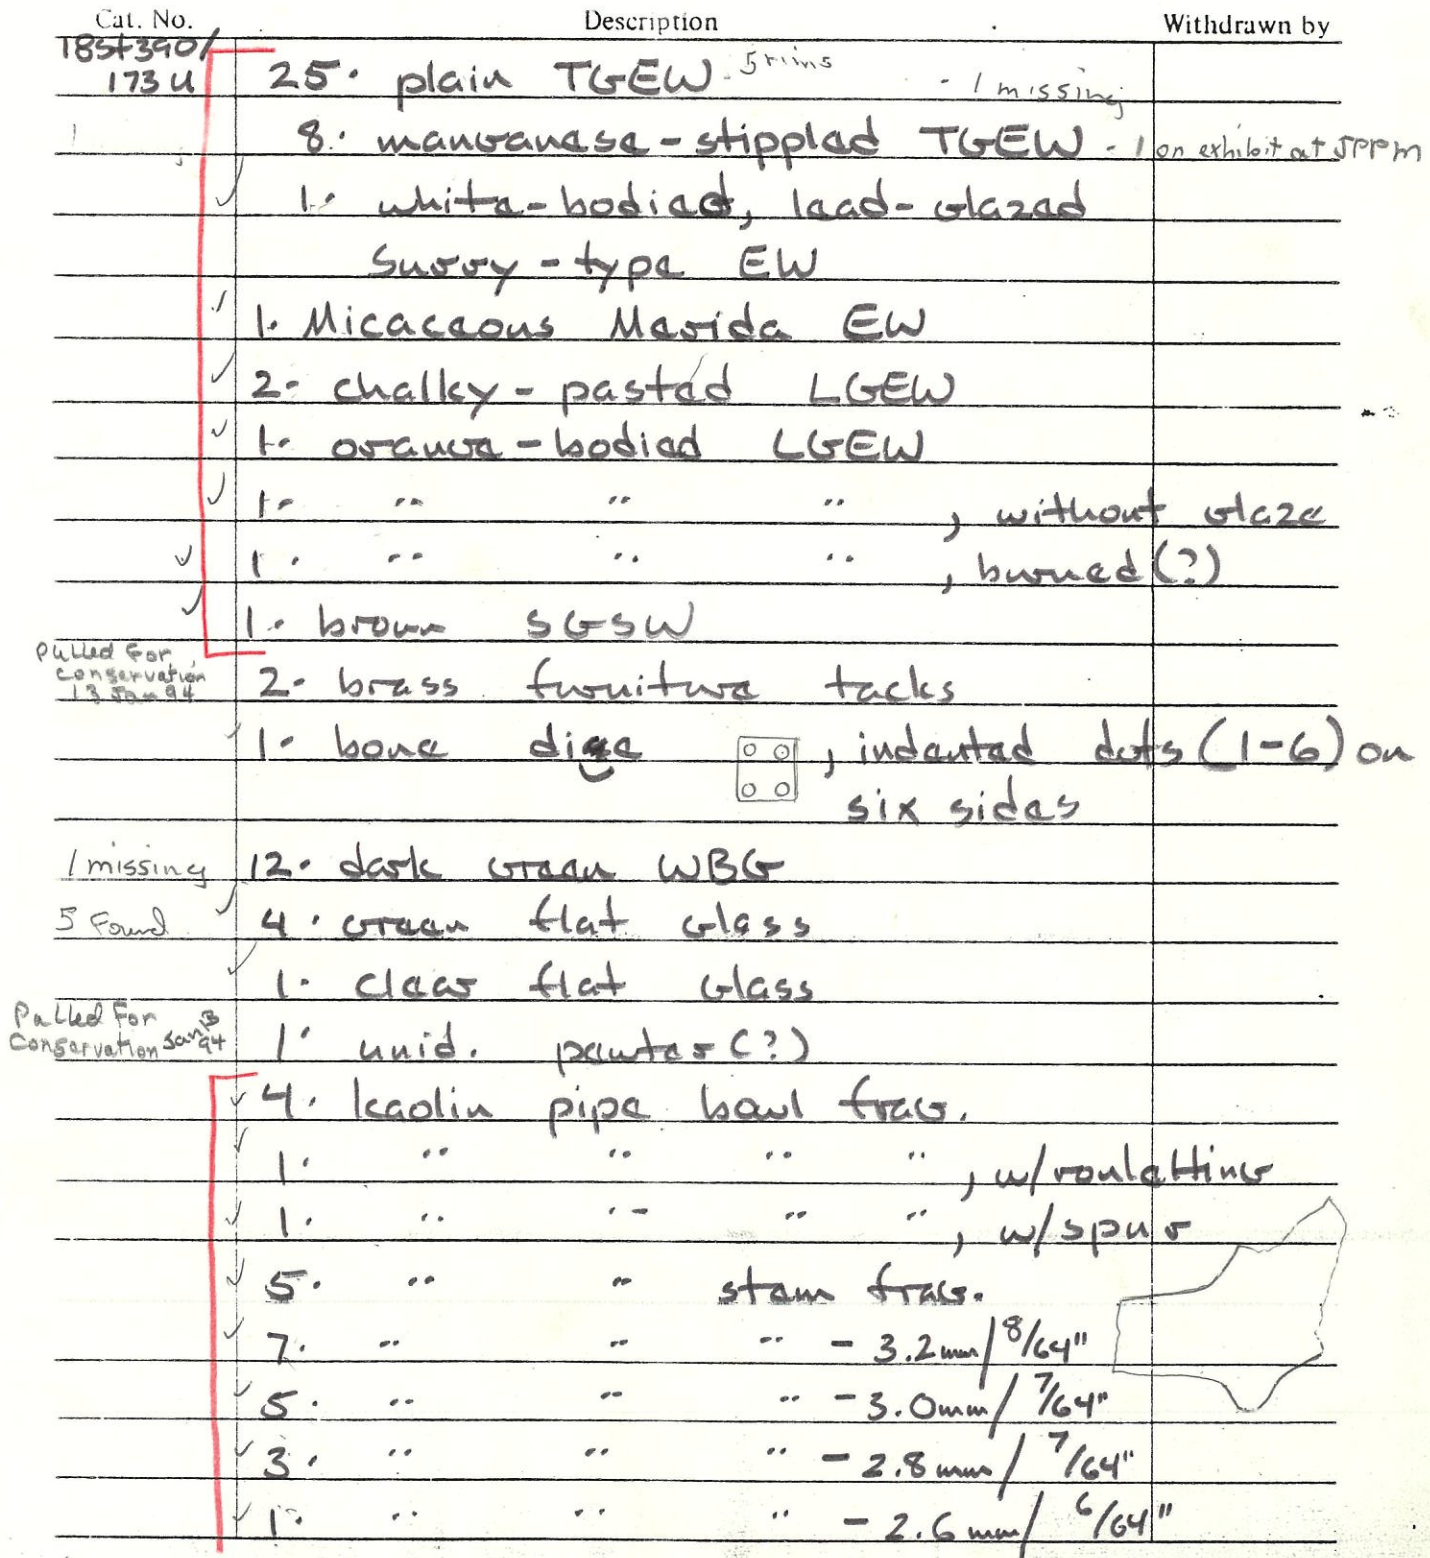 Cat. No. Description Withdrawn by
18St390/
173U 25. plain TGEW - 5 rims - 1 missing
1 8. manganese-stippled TGEW - 1 on exhibit at JPPM
1. white-bodied, lead-glazed
Surrey-type EW
1. Micaceous Merida EW
2. chalky-pasted LGEW
1. orange-bodied LGEW
1. " " " , without glaze
1. " " " , burned(?)
1. brown SGSW
Pulled For
conservation
13 Jan 94 2. brass furniture tacks
1. bone dice , indented dots (1-6) on
six sides
1 missing 12. dark green WBG
5 Found 4. green flat glass
1. clear flat glass
Pulled For
Conservation Jan 13 94 1. unid. pewter(?)
4. kaolin pipe bowl frag.
1. " " " " , w/rouletting
1. " " " " , w/spur
5. " " stem frag.
7. " " " - 3.2mm/8/64"
5. " " " - 3.0mm/7/64"
3. " " " - 2.8mm/7/64"
1. " " " - 2.6mm/6/64"